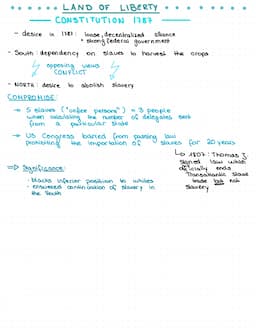 LAND OF LIBERTY
CONSTITUTION 1787
- desire in 1781: • loose, decentralized alliance
• strong federal government
- South: dependency on slaves to harvest the crops
opposing views
CONFLICT
- NORTH: desire to abolish slavery
COMPROMISE:
→ 5 slaves ("unfree persons") = 3 people
when calculating the number of delegates sent
from a particular state
→ US Congress barred from passing law
prohibiting the importation of slaves for 20 years
↳ 1807: Thomas J.
signed law which
officially ends
Transatlantic slave
trade but not
slavery
⇒ Significance:
- blacks inferior position to whites
- ensured continuation of slavery in
the South